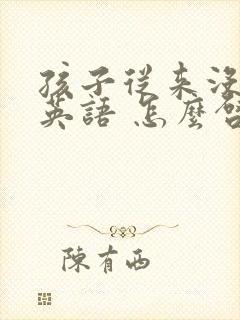 孩子從來沒
英語 怎麼啓
陳有西